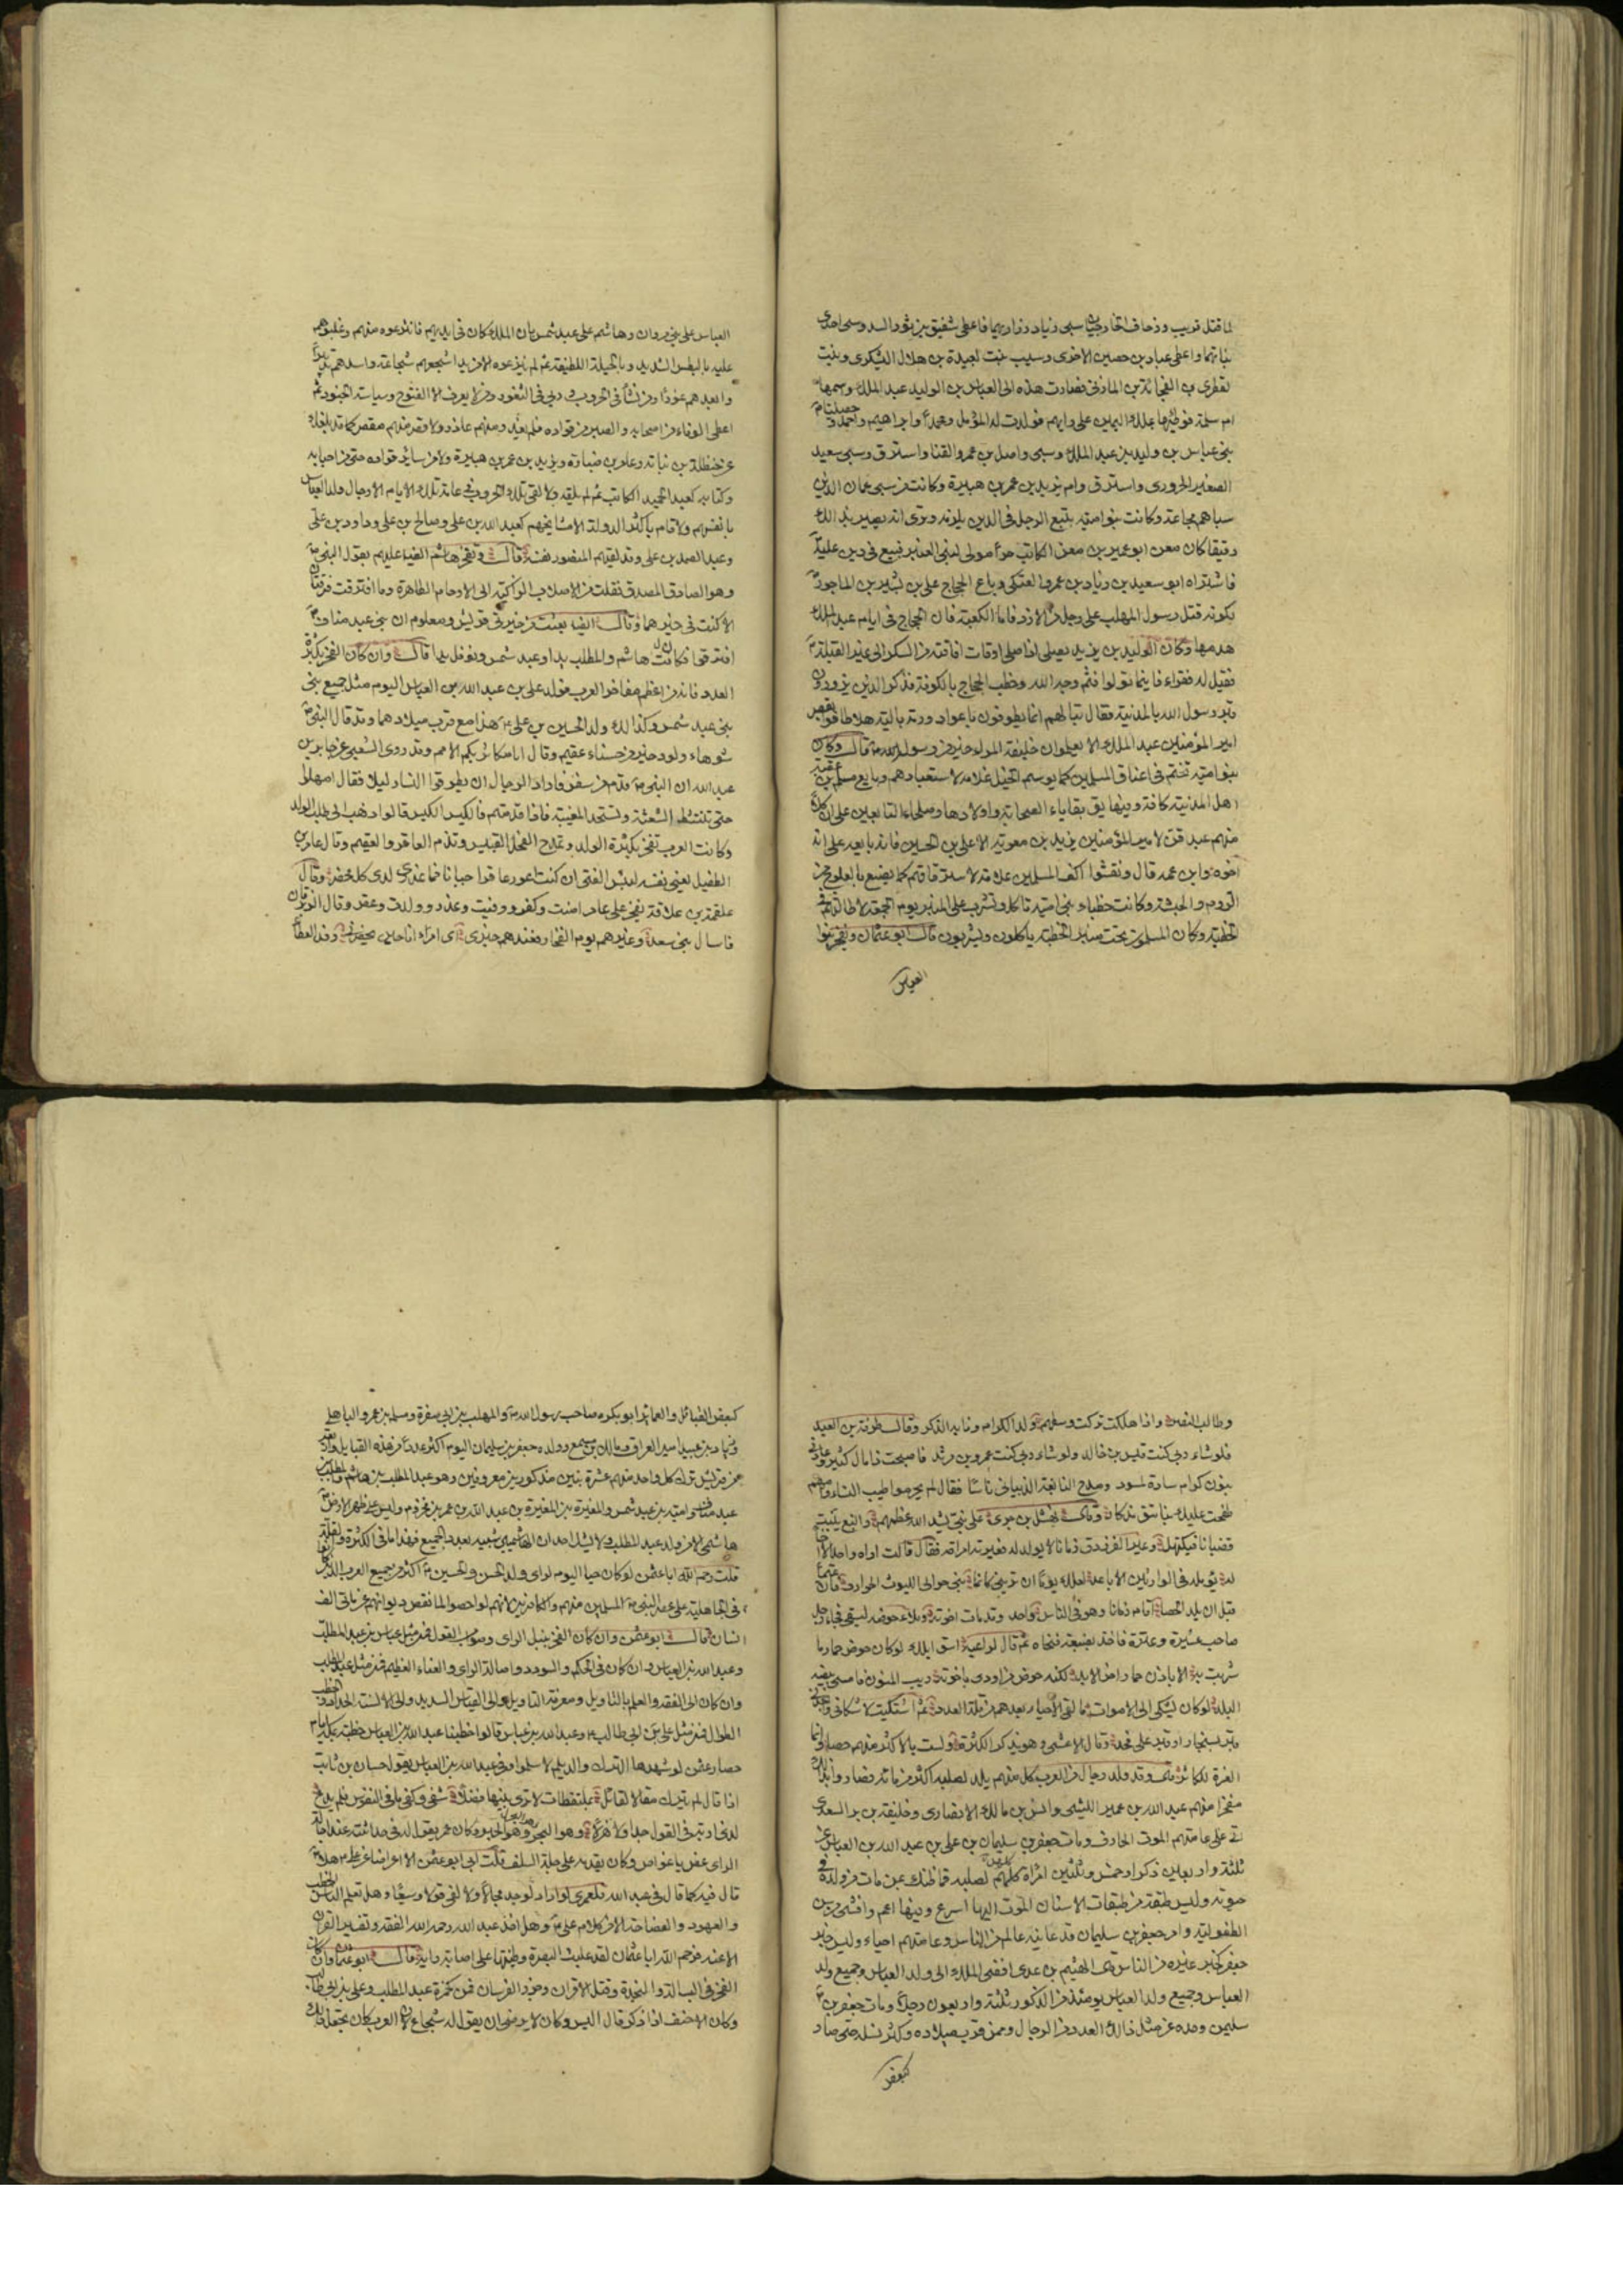 لما قتل قريب وزحاف الخارجيان سبى زياد ذراريهما فاعطى شقيق بن ثور السدوسى احدى
بناتهما واعطى عباد بن حصين الاخرى وسبيت بنت لعبيدة بن هلال اليشكرى وبنت
لقطرى بن الفجائة المازنى فصارت هذه الى العباس بن الوليد بن عبد الملك واسمها
ام سلمة فوطئها بملك اليمين على رايهم فولدت له المؤمل ومحمدا وابراهيم واحمد وحصينا
بنى عباس بن وليد بن عبد الملك وسبى واصل بن عمرو القنا واسترق وسبى سعيد
الصغير الحرورى واسترق وام يزيد بن عمر بن هبيرة وكانت من سبى عمان الذين
سباهم مجاعة وكانت بنو امية تبيع الرجل فى الدين يلزمه وترى انه يصير بذلك
رقيقا كان معن ابو عمير بن معن الكاتب حرا مولى لبنى العنبر فبيع فى دين عليه
فاشتراه ابو سعيد بن زياد بن عمرو العتكى وباع الحجاج على بن بشير بن الماحوز
لكونه قتل رسول المهلب على رجل من الازد فاما الكعبة فان الحجاج فى ايام عبد الملك
هدمها وكان الوليد بن يزيد يصلى اذا صلى اوقات افاقته من السكر الى غير القبلة
فقيل له فقراء فاينما تولوا فثم وجه الله وخطب الحجاج بالكوفة فذكر الذين يزورون
قبر رسول الله بالمدينة فقال تبا لهم انما يطوفون باعواد ورمة بالية هلا طافوا بقصر
امير المؤمنين عبد الملك الا يعلمون ان خليفة المرء خير من رسوله قال وكانت
بنو امية تختم فى اعناق المسلمين كما يوسم الخيل علامة لاستعبادهم وبايع مسلم بن عقبة
اهل المدينة كافة وفيها بقايا الصحابة واولادها وصلحاء التابعين على ان كلا
منهم عبد قن لامير المؤمنين يزيد بن معوية الا على بن الحسين فانه بايعه على انه
اخوه وابن عمه قال ونقشوا اكف المسلمين علامة لاسترقاقهم كما يصنع بالعلوج من
الروم والحبشة وكانت خطباء بنى امية تاكل وتشرب على المنبر يوم الجمعة لاطالتهم فى
الخطبة وكان المسلمون تحت منابر الخطبة ياكلون ويشربون قال ابو عثمان ويفخر بنوا
العباس
العباس على بنى مروان وهاشم على عبد شمس بان الملك كان فى ايديهم فانتزعوه منهم وغلبوهم
عليه بالبطش الشديد وبالحيلة اللطيفة ثم لم ينزعوه الا من يد اشجعهم شجاعة واسدهم تدبيرا
وابعدهم غورا ومن نشأ فى الحروب وربى فى الثغور ومن لا يعرف الا الفتوح وسياسة الجنود ثم
اعطى الوفاء من اصحابه والصبر من قواده فلم يغدر منهم غادر ولا قصر منهم مقصر كما قد بلغك
عن حنظلة بن نباتة وعامر بن ضبارة ويزيد بن عمر بن هبيرة ولا من سائر قواده حتى من احبابه
وكتابه كعبد الحميد الكاتب ثم لم يلقه ولا لقى تلك الحروب فى عامة تلك الايام الا رجال ولد العباس
بانفسهم ولا قام باكثر الدولة الا مشايخهم كعبد الله بن على وصالح بن على وداود بن على
وعبد الصمد بن على وقد لقيهم المنصور نفسه قال وتفخر هاشم ايضا عليهم بقول النبى
وهو الصادق المصدق نقلت من الاصلاب الزاكية الى الارحام الطاهرة وما افترقت فرقتان
الا كنت فى خيرهما وقال ايضا بعثت من خيرة قريش ومعلوم ان بنى عبد مناف
افترقوا فكانت هاشم والمطلب يدا وعبد شمس ونوفل يدا قال وان كان الفخر بكثرة
العدد فانه من اعظم مفاخر العرب فولد على بن عبد الله بن العباس اليوم مثل جميع بنى
بنى عبد شمس وكذلك ولد الحسين بن على هذا مع قرب ميلادهما وقد قال النبى
شوهاء ولود خير من حسناء عقيم وقال انا مكاثر بكم الامم وقد روى الشعبى عن جابر بن
عبد الله ان النبى قدم من سفر فاراد الرجال ان يطرقوا النساء ليلا فقال امهلوا
حتى تمتشط الشعثة وتستحد المغيبة فاذا قدمتم فالكيس الكيس قالوا ذهب الى طلب الولد
وكانت العرب تفخر بكثرة الولد وتمدح الفحل القبيس وتذم العاقر والعقيم وقال عامر بن
الطفيل يعنى نفسه لبئس الفتى ان كنت اعور عاقرا جبانا فما عذرى لدى كل محضر وقال
علقمة بن علاثة يفخر على عامر امنت وكفر ووفيت وغدر وولدت وعقر وقال الزبرقان
فاسال بنى سعد وغيرهم يوم الفخار فعندهم خبرى اى امرء انا حين يحضرنى رفد العطا
وطالب النصر واذا هلكت تركت وسطهم ولد الكرام ونابه الذكر وقال طرفة بن العبد
فلو شاء ربى كنت قيس بن خالد ولو شاء ربى كنت عمرو بن مرثد فاصبحت ذا مال كثير وعادنى
بنون كرام سادة لمسود ومدح النابغة الذبيانى ناسا فقال لم يحرموا طيب النساء وامهم
طفحت عليك بناتق مذكار وقال نهشل بن حرى على بنى يشد الله عظمهم والنبع ينبت
قضبانا فيكتهل وعير الفرزدق زمانا لا يولد له فعيرته امراته فقال قالت اراه واحدا لا اخا
له يؤمله فى الوارثين الاباعد لعلك يوما ان ترينى كانما بنى حوالى الليوث الحوارد فان تميما
قبل ان يلد الحصا اقام زمانا وهو فى الناس واحد وقد مات اخوته وملأ حوضه ليسقى فجاء رجل
صاحب عشيرة وعترة فاخذ بضبعه فنحاه ثم قال لراعيه اسق ابلك لو كان حوض حمار ما
شربت به الا باذن حمار اخر الابد لكنه حوض من اودى باخوته ريب المنون فامسى بيضة
البلد لو كان يشكى الى الاموات ما لقى الاحياء بعدهم من قلة العدد ثم اشتكيت لاشكانى وساكنه
قبر بسنجار او قبر على قحد وقال الاعشى وهو يذكر الكثرة ولست بالاكثر منهم حصا وانما
العزة للكاثر قال وقد ولد رجال من العرب كل منهم يلد لصلبه اكثر من مائة فصاروا بذلك
مفخرا منهم عبد الله بن عمير الليثى وانس بن مالك الانصارى وخليفة بن بر السعدى
اتى على عامتهم الموت الجارف ومات جعفر بن سليمان بن على بن عبد الله بن العباس عن
ثلثة واربعين ذكرا وخمس وثلثين امراة كلهم لصلبه فما ظنك بمن مات من ولده فى
حيوته وليس طبقة من طبقات الاسنان الموت اليها اسرع وفيها اعم وافشى من سن
الطفولية وامر جعفر بن سليمان قد عاينه عالم من الناس وعامتهم احياء وليس خبر
جعفر كخبر غيره من الناس قال الهيثم بن عدى افضى الملك الى ولد العباس وجميع ولد
العباس وجميع ولد العباس يومئذ من الذكور ثلثة واربعون رجلا ومات جعفر بن
سليمن وحده عن مثل ذلك العدد من الرجال وممن قرب ميلاده وكثر نسله حتى صار
كبعض
كبعض القبائل والعمائر ابو بكره صاحب رسول الله والمهلب بن ابى صفرة ومسلم بن عمرو الباهلى
وزياد بن عبيد امير العراق ومالك بن مسمع وولد جعفر بن سليمان اليوم اكثر عددا من هذه القبايل واربعة
من قريش ترك كل واحد منهم عشرة بنين مذكورين معروفين وهو عبد المطلب بن هاشم والمطلب بن
عبد مناف وامية بن عبد شمس والمغيرة بن المغيرة بن عبد الله بن عمر بن مخزوم وليس على ظهر الارض
هاشمى الا من ولد عبد المطلب ولا يشك احد ان الهاشميين شبيه بعدد الجميع فهذا ما فى الكثرة والقلة
قلت رحم الله ابا عثمن لو كان حيا اليوم لراى ولد الحسن والحسين اكثر من جميع العرب الذين كانوا
فى الجاهلية على عصر النبى المسلمين منهم والكافرين لانهم لو احصوا لما نقص ديوانهم عن مائتى الف
انسان قال ابو عثمن وان كان الفخر بنبل الراى وصواب القول فمن مثل عباس بن عبد المطلب
وعبد الله بن العباس وان كان فى الحكم والسودد واصالة الراى والغناء العظيم فمن مثل عبد المطلب
وان كان الى الفقه والعلم بالتاويل ومعرفة التاويل والى القياس السديد والى الالسنة الحداد والخطب
الطوال فمن مثل على بن ابى طالب وعبد الله بن عباس قالوا خطبنا عبد الله بن العباس خطبة بمكة ايام
حصار عثمن لو شهدها الترك والديلم لاسلموا وفى عبد الله بن العباس يقول حسان بن ثابت
اذا قال لم يترك مقالا لقائل بملتقطات لا ترى بينها فضلا شفى وكفى ما فى النفوس فلم يدع
لذى اربة فى القول جدا ولا هزلا وهو البحر وهو الحبر وكان عمر يقول له فى حداثته عند اجالة
الراى غص يا غواص وكان يقدمه على جلة السلف قلت ابى ابو عثمن الا اعراضا عن على هلا
قال فيه كما قال فى عبد الله فلعمرى لو اراد لوجد مجالا ولالفى قولا وسيعا وهل تعلم الناس الخطب
والعهود والفصاحة الا من كلام على وهل اخذ عبد الله رحمه الله الفقه وتفسير القران
الا عنه فرحم الله ابا عثمان لقد غلبت البصرة وطينتها على اصابة رايه قال ابو عثمان وان كان
الفخر فى البسالة والنجدة وقتل الاقران وجزر الفرسان فمن كحمزة بن عبد المطلب وعلى بن ابى طالب
وكان الاحنف اذا ذكر قال اليس وكان لا يرضى ان يقول له شجاع لان العرب كان تجعل ذلك